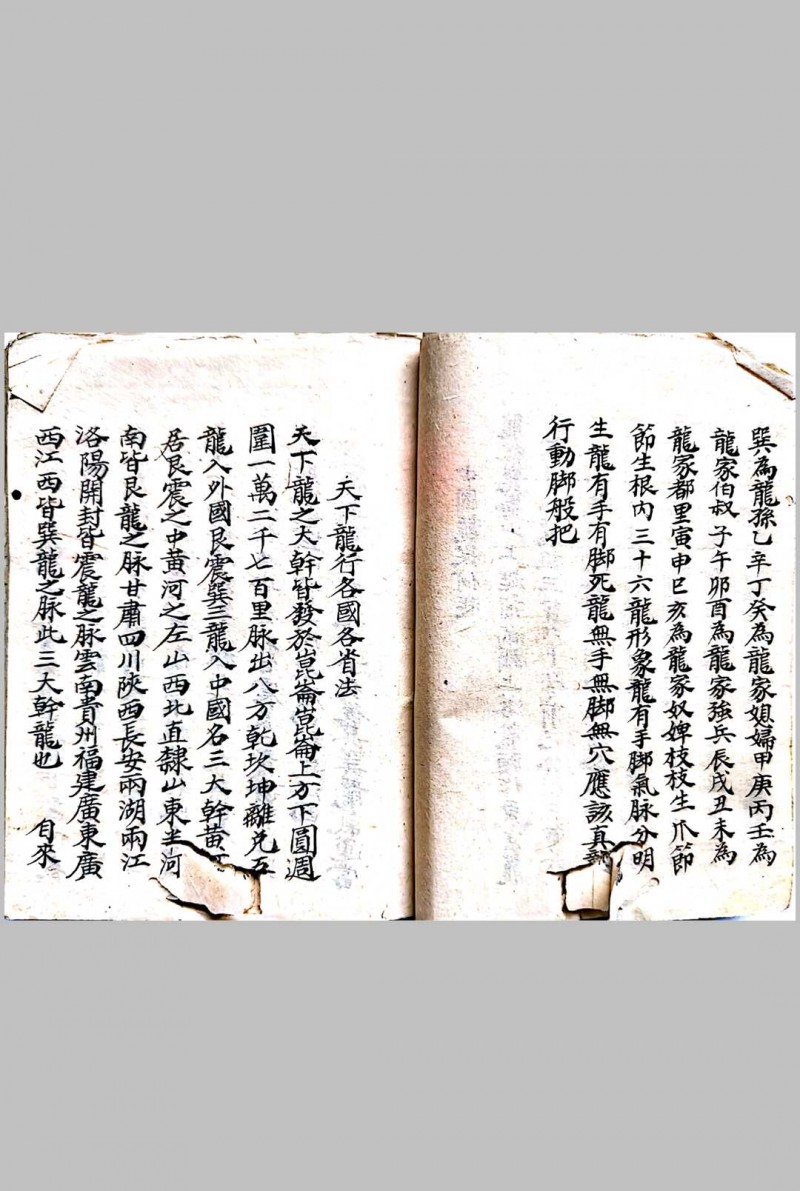 巽為龍孫乙辛丁癸為龍家媳婦甲庚丙壬為
龍家伯叔子午卯酉為龍家強兵辰戌丑未為
龍家都里寅申巳亥為龍家奴婢枝枝生爪節
節生根內三十六龍形象龍有手腳氣脉分明
生龍有手有脚死龍無手無脚無穴應該真
行動脚般把
天下龍行各國各省法
天下龍之大幹皆發於崑崙崑崙上方下圓週
圍一萬二千七百里脉出八方乾坎坤離兌五
龍入外國艮震巽三龍入中國名三大幹黃
居艮震之中黃河之左山西北直隸山東半河
南皆艮龍之脉甘肅四川陝西長安兩湖兩江
洛陽開封皆震龍之脉雲南貴州福建廣東廣
西江西皆巽龍之脉此三大幹龍也 自來